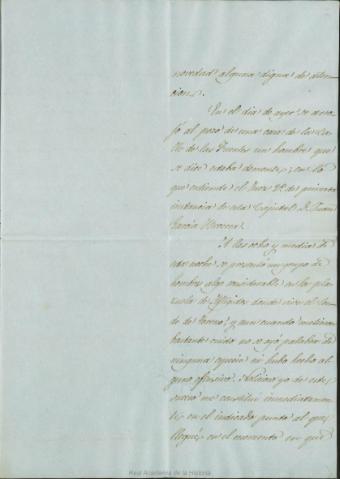 novedad alguna digna de aten-
cion.
En el dia de ayer se arro-
jó al pozo de una casa de la Ca-
lle de las Fuentes un hombre que
se dice estaba demente; en lo
que entiende el Juez 2º de primera
instancia de esta Capital D. Juan
García
A las ocho y media de
esta noche se presentó un grupo de
hombres algo considerable en la pla-
zuela de Afligidos donde vive el Con-
de de y aun cuando metieron
bastante ruido no se oyó palabra de
ninguna especie ni hubo hecho al-
guno ofensivo. Noticioso yo de este
suceso me constituí inmediatamen-
te en el indicado punto al que
llegué en el momento en que
Real Academia de la Historia